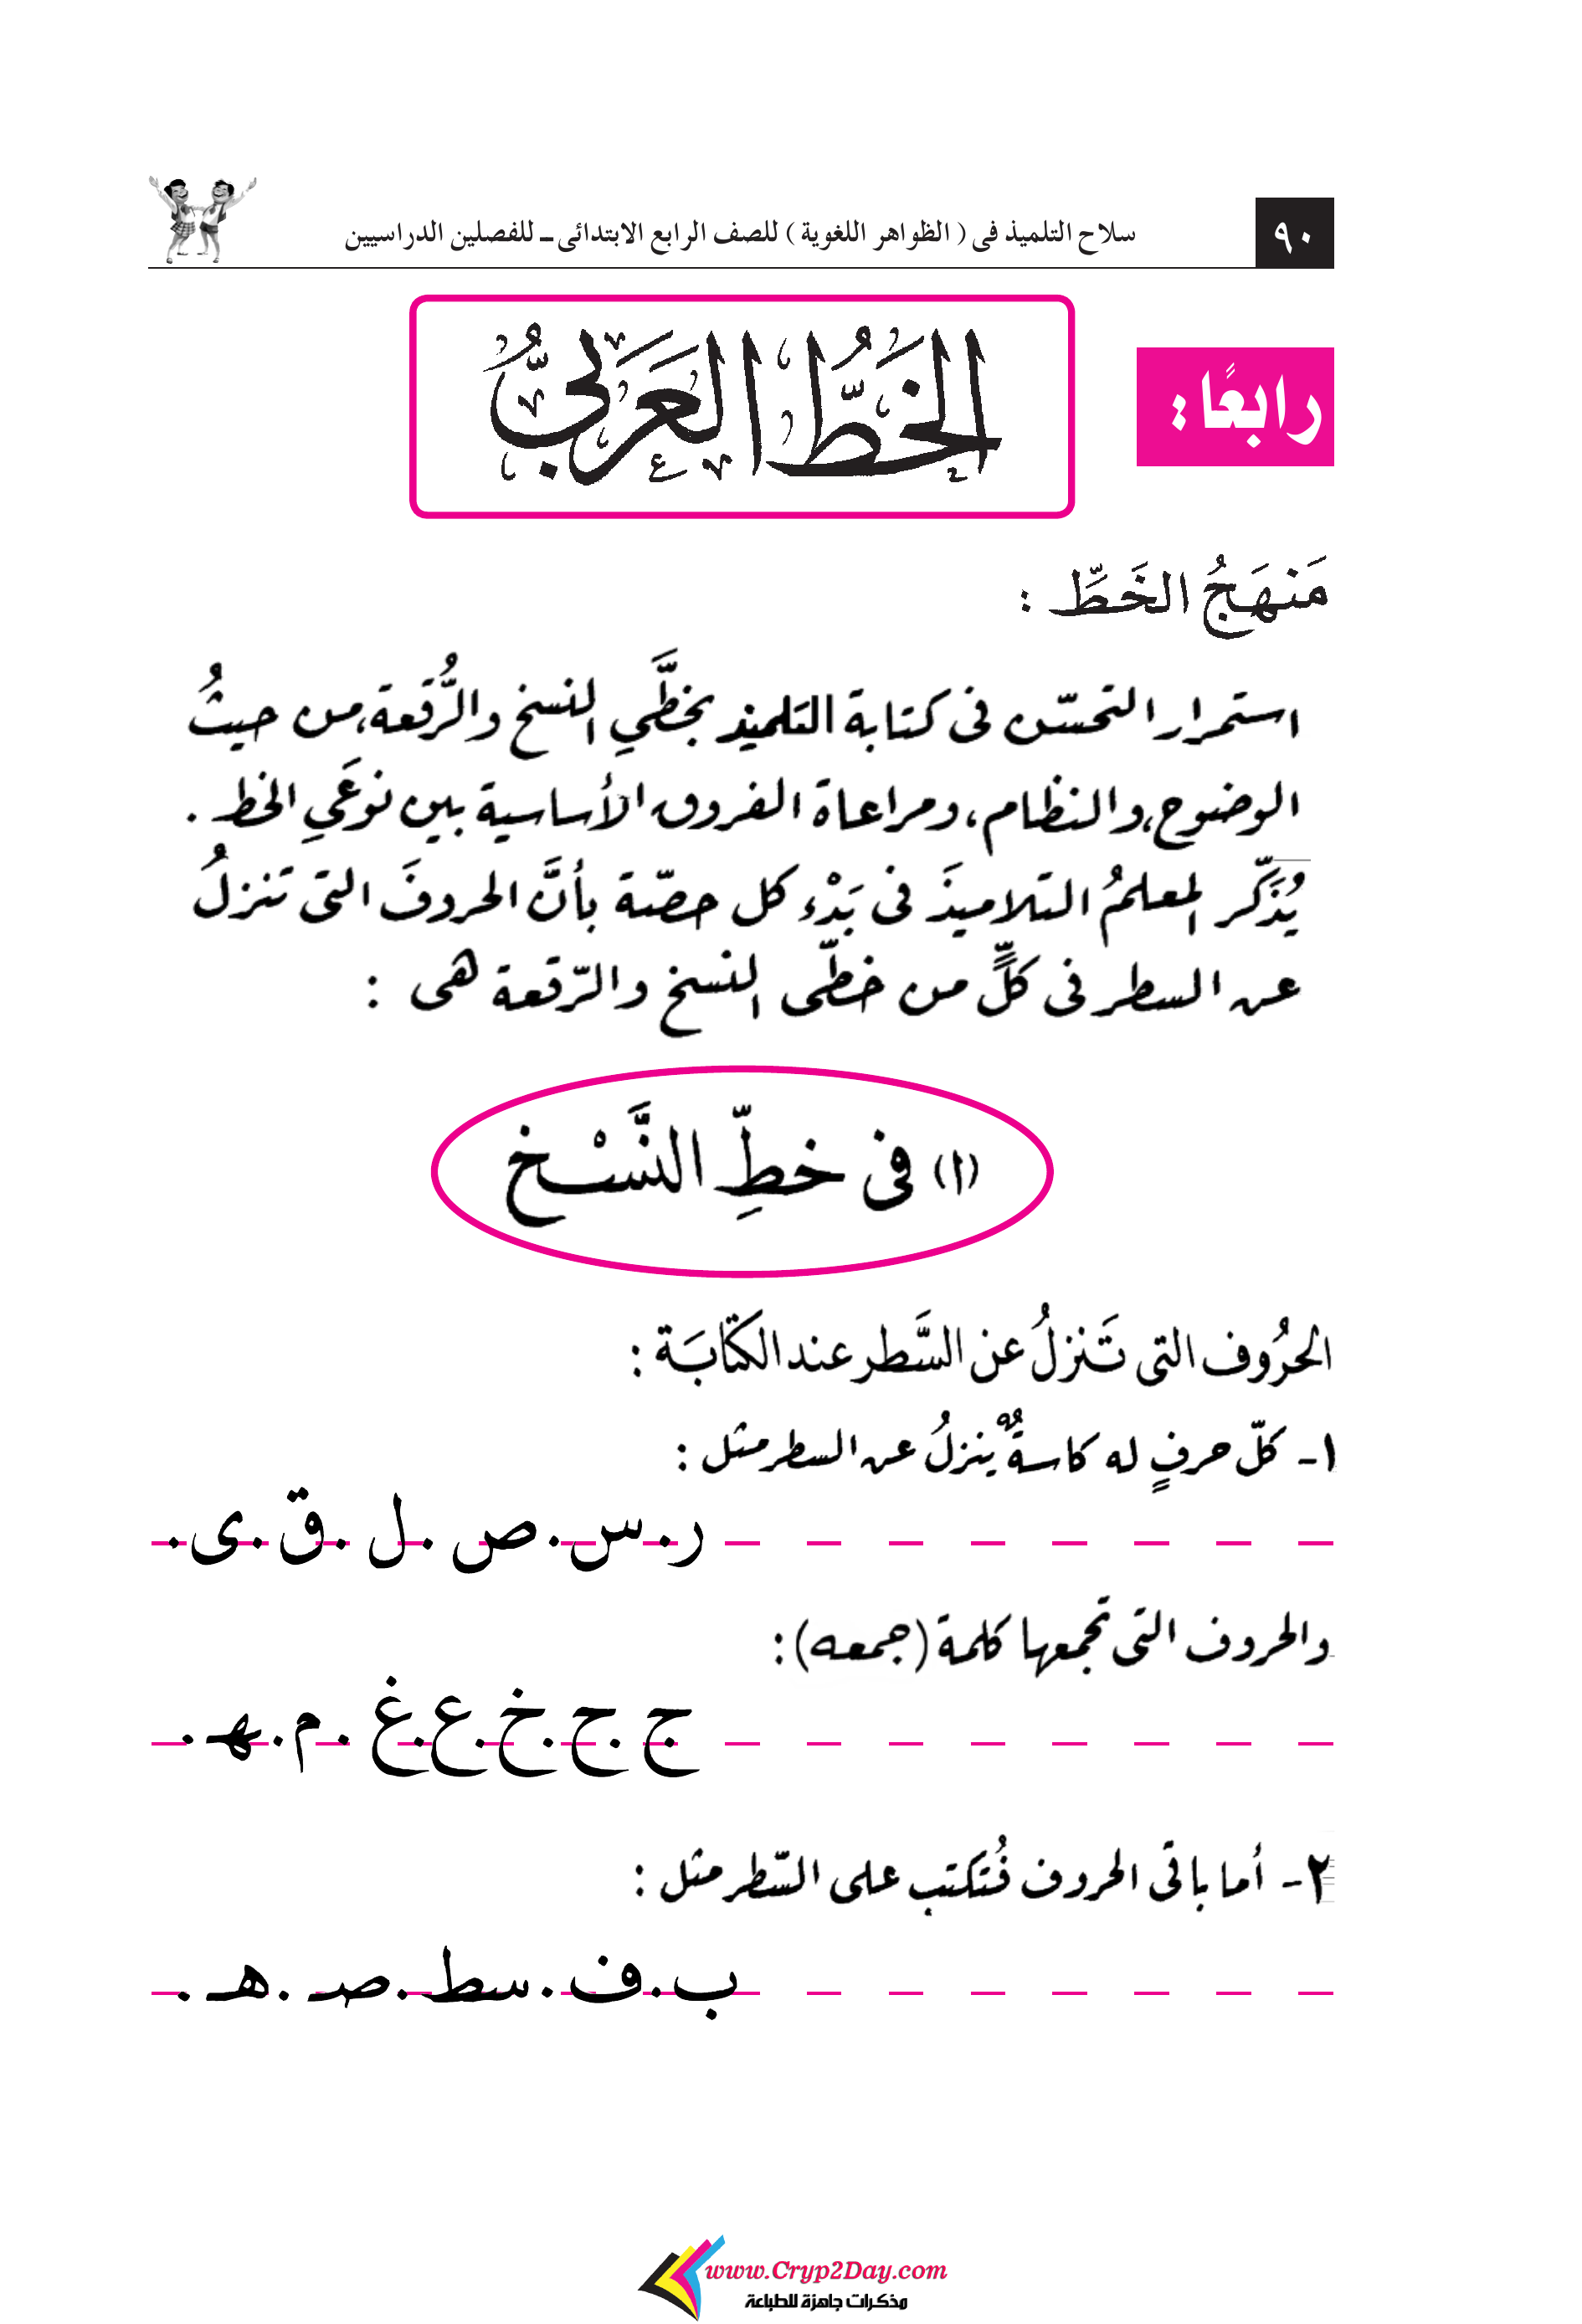 ٩٠
سلاح التلميذ فى ( الظواهر اللغوية ) للصف الرابع الابتدائى ـ للفصلين الدراسيين
رابعًا :
الخَطُّ العَرَبِىُّ
مَنهَجُ الخَطِّ :
استمرار التحسّن فى كتابة التلميذ بخطَّىِ النسخ والرُّقعة، من حيثُ
الوضوح، والنظام، ومراعاة الفروق الأساسية بين نوعَىِ الخط .
يُذَكِّر المعلمُ التلاميذَ فى بَدْء كل حصّة بأنَّ الحروفَ التى تنزلُ
عن السطر فى كلٍّ من خطّى النسخ والرّقعة هى :
(١) فى خطِّ النَّسْخ
الحرُوف التى تَنزلُ عن السَّطر عند الكتَابَة :
١- كلّ حرفٍ له كاسةٌ ينزلُ عن السطر مثل :
ر . س . ص . ل . ق . ى .
والحروف التى تجمعها كلمة (جمعه) :
ج ح خ . ع . غ . م . ـهـ .
٢- أما باقى الحروف فتُكتب على السّطر مثل :
ب . ف . سط . صـ . هـ .
www.Cryp2Day.com
مذكرات جاهزة للطباعة